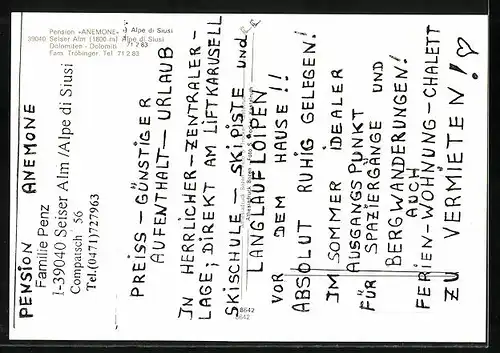 Pension «ANEMONE» Alpe di Siusi
39040 Seiser Alm (1800 m) Alpe di Siusi
Dolomiten - Dolomiti 71 2 63
Fam. Tröbinger, Tel. 71 2 83
PENSION ANEMONE
Familie Penz
I-39040 Seiser Alm /Alpe di Siusi
Compatsch 56
Tel.(0471)727963
PREISS-GÜNSTIGER
AUFENTHALT-URLAUB
IN HERRLICHER-ZENTRALER-
LAGE; DIREKT AM LIFTKARUSELL
SKISCHULE-SKIPISTE und
LANGLAUFLOIPEN
VOR DEM HAUSE!!
ABSOLUT RUHIG GELEGEN!
IM SOMMER IDEALER
AUSGANGSPUNKT
FÜR SPAZIERGÄNGE UND
BERGWANDERUNGEN!
AUCH
FERIEN-WOHNUNG-CHALETT
ZU VERMIETEN!
8642
8642